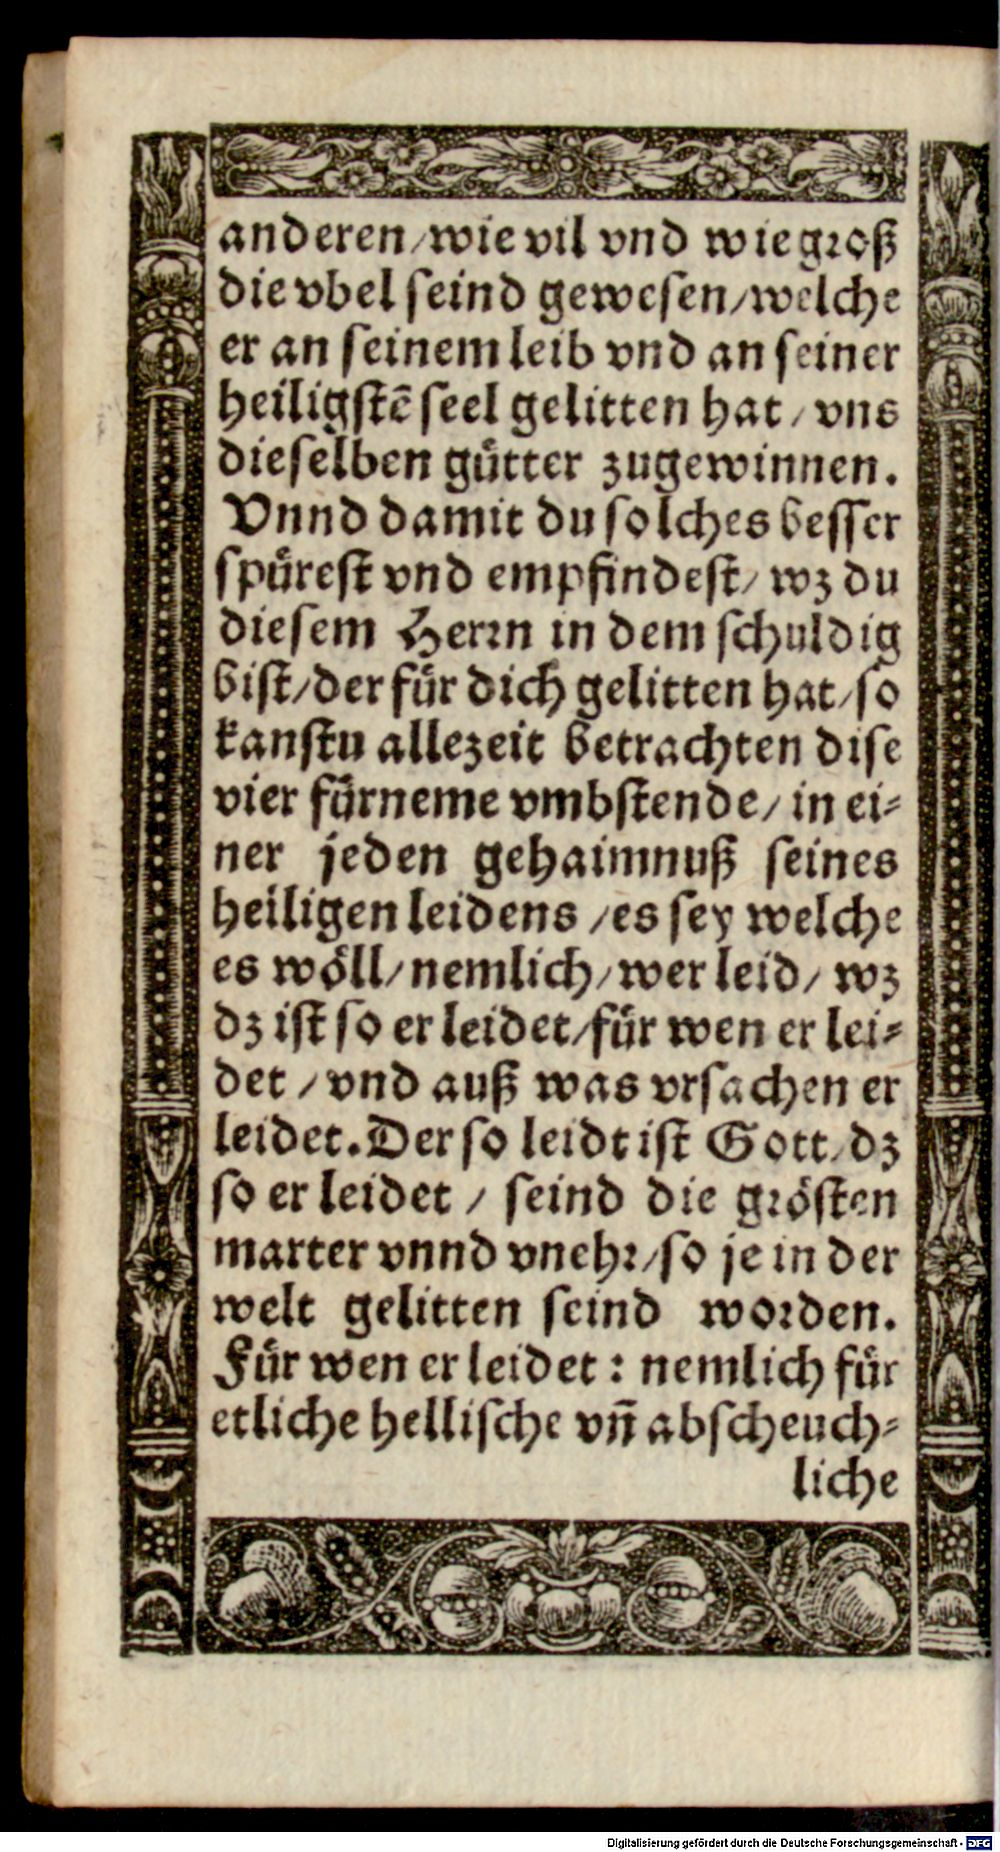 anderen/wie vil vnd wie groß
die vbel seind gewesen/welche
er an seinem leib vnd an seiner
heiligstē seel gelitten hat/ vns
dieselben gůtter zugewinnen.
Vnnd damit du solches besser
spürest vnd empfindest/ wz du
diesem Herrn in dem schuldig
bist/der für dich gelitten hat/so
kanstu allezeit betrachten dise
vier fürneme vmbstende/ in ei-
ner jeden gehaimnuß seines
heiligen leidens /es sey welche
es wöll/nemlich/wer leid/ wz
dz ist so er leidet/für wen er lei-
det /vnd auß was vrsachen er
leidet.Der so leidt ist Gott/dz
so er leidet / seind die grösten
marter vnnd vnehr/so je in der
welt gelitten seind worden.
Für wen er leidet: nemlich für
etliche hellische vñ abscheuch-
liche
Digitalisierung gefördert durch die Deutsche Forschungsgemeinschaft - DFG